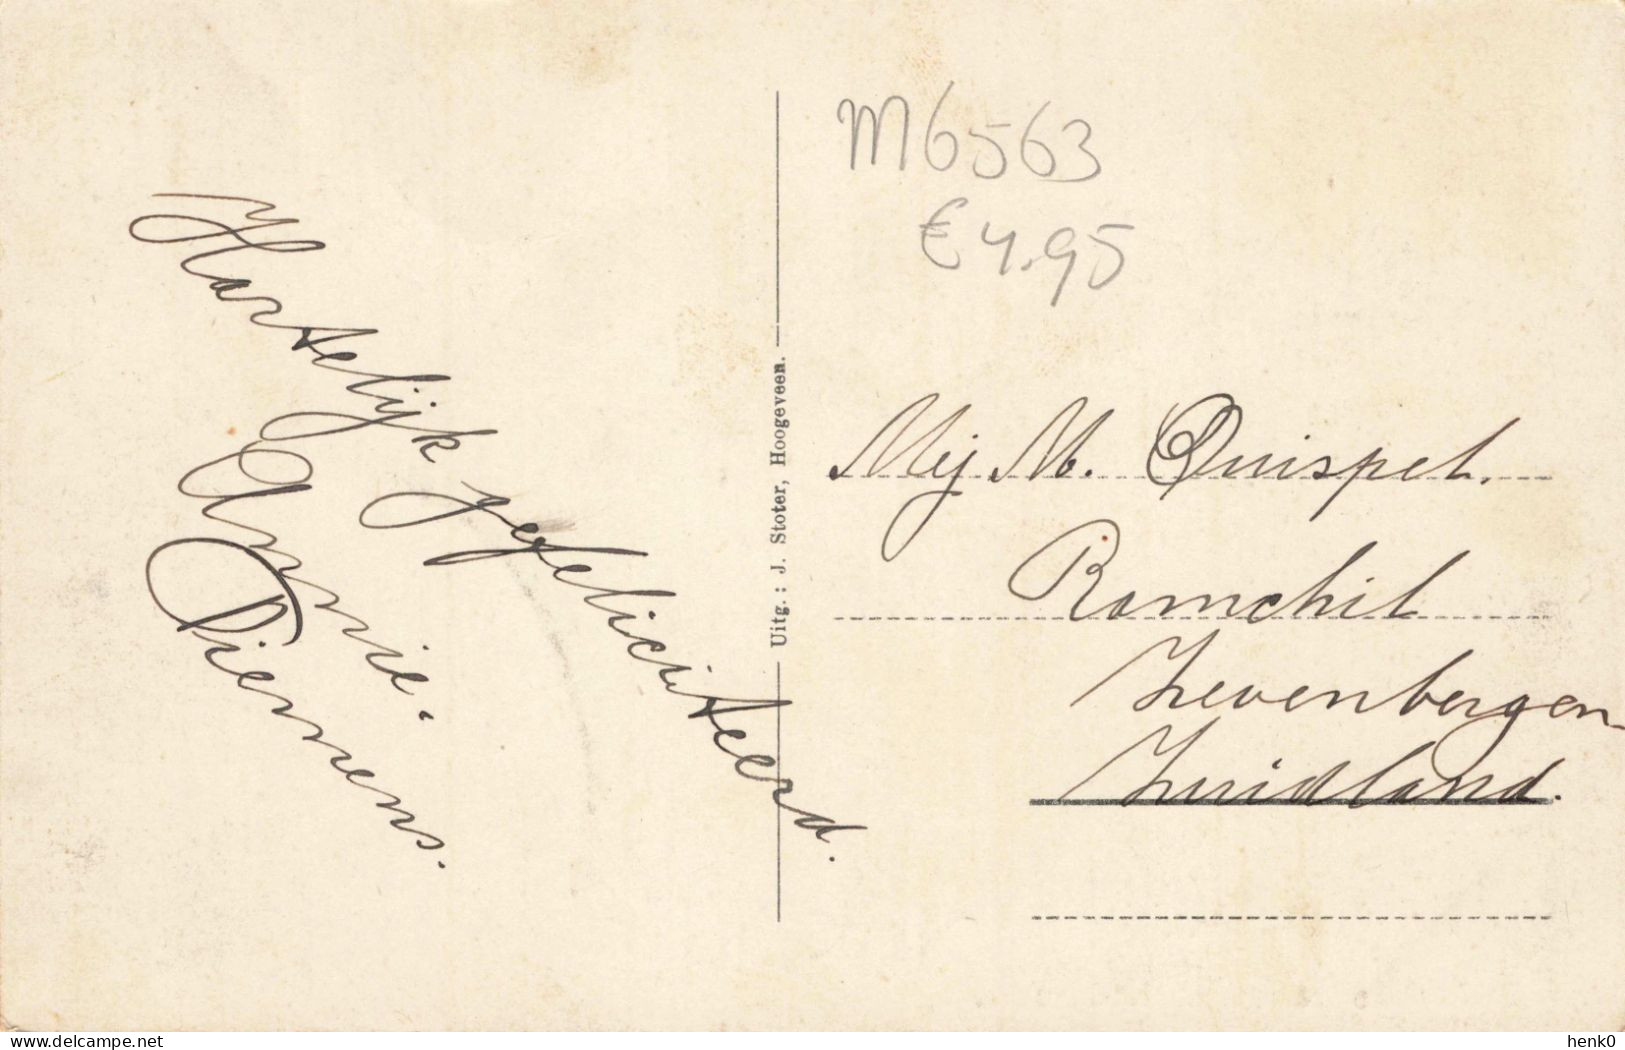 Hartelijk gefeliciteerd.
Annie.
Diemens.
Uitg.: J. Stoter, Hoogeveen.
M6563
€ 4.95
Mej M. Quispel.
Zevenbergen
Zuidland.
www.delcampe.net
henk0